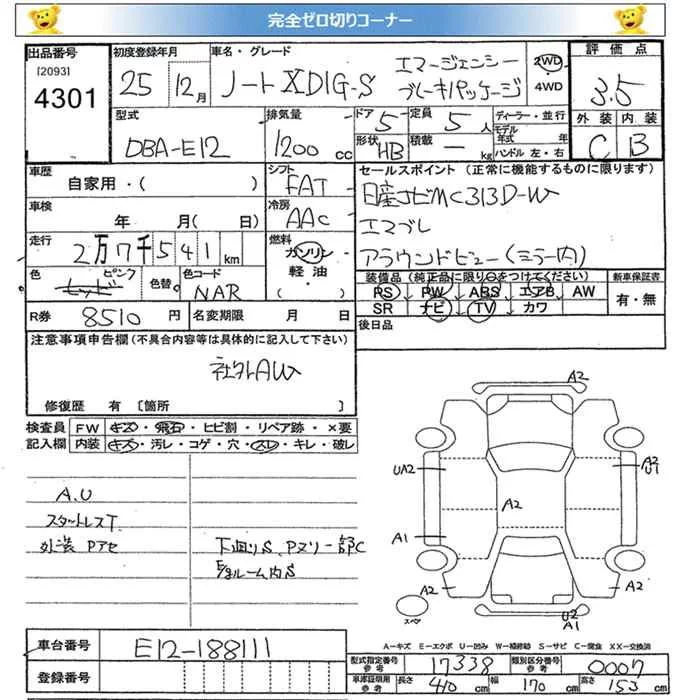 完全ゼロ切りコーナー
出品番号
[2093]
4301
初度登録年月
25 12月
車名・グレード
ノート X DIG-S
エマージェンシー
ブレーキパッケージ
2WD
4WD
評価点
3.5
外装 内装
C B
型式
DBA-E12
排気量
1200 cc
ドア 5
定員 5 人
形状 HB
積載 — kg
ディーラー・並行
モデル年式 年
ハンドル 左・右
車歴
自家用・( )
シフト
FAT
セールスポイント (正常に機能するものに限ります)
日産ナビMC313D-W
エマブレ
アラウンドビュー(ミラー内)
車検
年 月( 日)
冷房
AAC
走行
2万7千541km
燃料
ガソリン
軽油・
( )
色
ピンク
色替
色コード
NAR
装備品 (純正品に限り○をつけてください)
PS PW ABS エアB AW
SR ナビ TV カワ
新車保証書
有・無
R券 8510 円
名変期限 月 日
後日品
注意事項申告欄(不具合内容等は具体的に記入して下さい)
社外AW
修復歴 有 [箇所 ]
検査員
記入欄
FW キズ・飛石・ヒビ割・リペア跡・×要
内装 キズ・汚レ・コゲ・穴・スレ・キレ・破レ
A.U
スタットレスT
外装 Pアセ
下回りS、Pヌリ一部C
E/gルーム内S
A2
UA2
A2
U1
A2
A1
A2
A2
スペア
U2
A1
A−キズ E−エクボ U−凹み W−補修跡 S−サビ C−腐食 XX−交換済
車台番号
E12-188111
登録番号
型式指定番号
参考
17338
類別区分番号
参考
0007
車庫証明用
参考
長さ 410 cm
幅 170 cm
高さ 153 cm